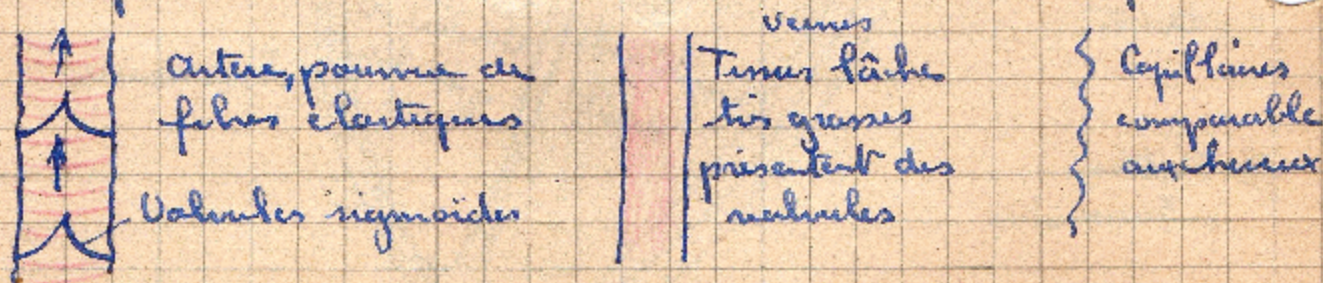 Artere, pourvue de
fibres elastiques
Valvules sigmoïdes
veines
Tissus lâche
très grosses
présentent des
valvules
Capillaires
comparable
aux cheveux